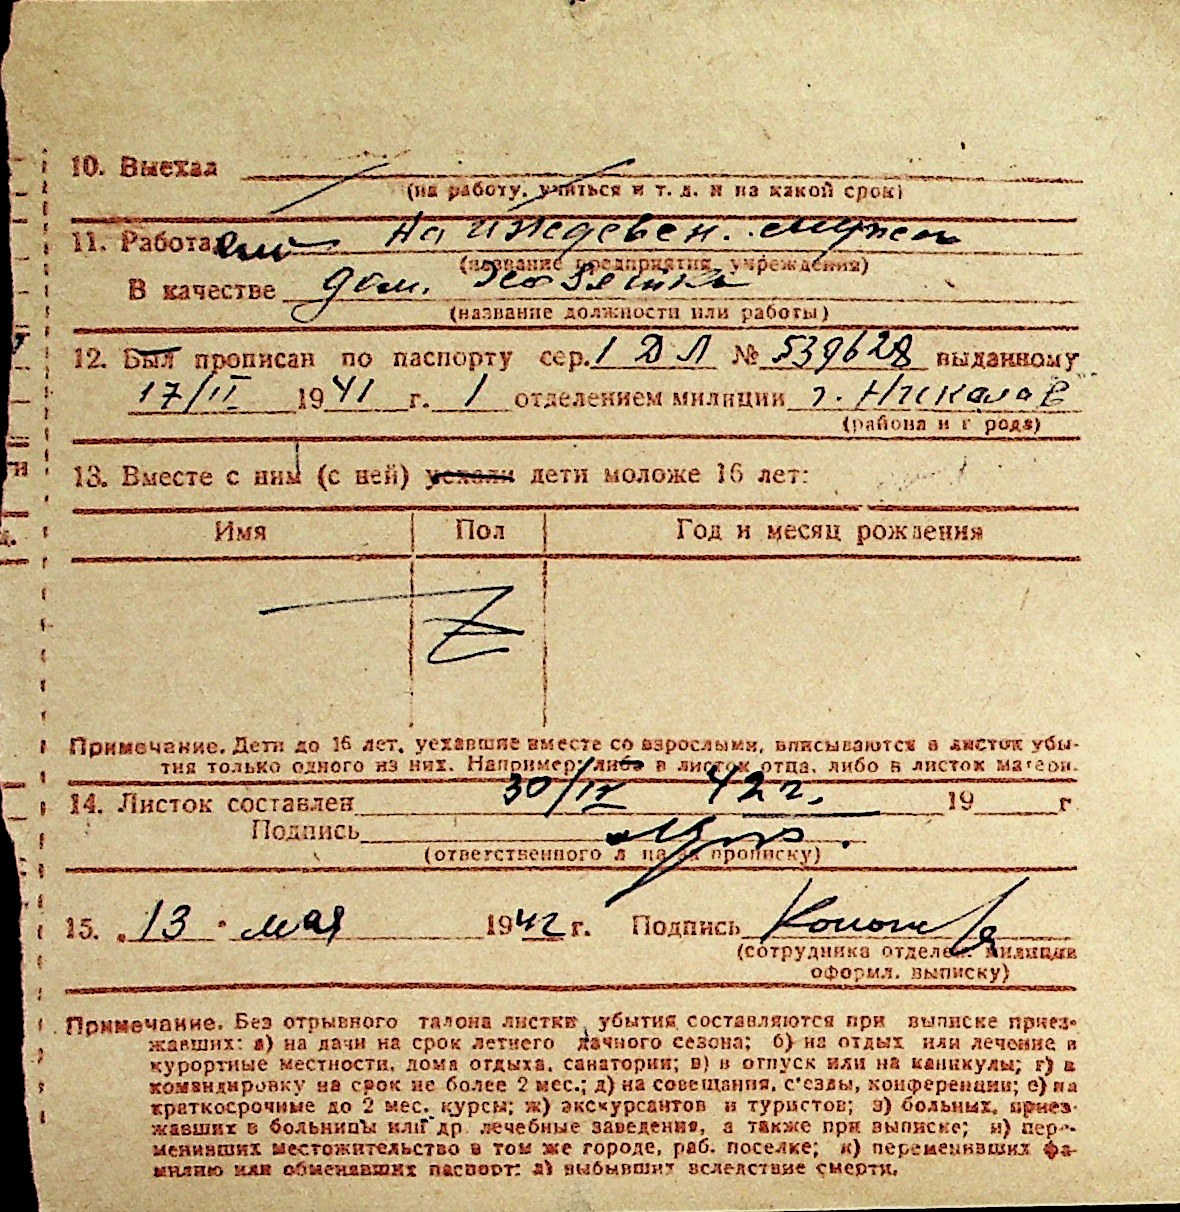 10. Выехал
(на работу, учиться и т. д. и на какой срок)
11. Работа на иждевен. мужа
(название предприятия, учреждения)
В качестве дом. хозяйка
(название должности или работы)
12. Был прописан по паспорту сер. 1 ДЛ № 539628 выданному
17/II 1941 г. 1 отделением милиции г. Николаев
(района и г рода)
13. Вместе с ним (с ней) уехали дети моложе 16 лет:
Имя Пол Год и месяц рождения
Z
Примечание. Дети до 16 лет, уехавшие вместе со взрослыми, вписываются в листок убы-
тия только одного из них. Например: либо в листок отца, либо в листок матери.
14. Листок составлен 30/IV 42 г. 19 г
Подпись
(ответственного л ца за прописку)
15. „13 " мая 1942 г. Подпись
(сотрудника отделен. милиции
оформл. выписку)
Примечание. Без отрывного талона листки убытия составляются при выписке приез-
жавших: а) на дачи на срок летнего дачного сезона; б) на отдых или лечение в
курортные местности, дома отдыха, санатории; в) в отпуск или на каникулы; г) в
командировку на срок не более 2 мес.; д) на совещания, с'езды, конференции; е) на
краткосрочные до 2 мес. курсы; ж) экскурсантов и туристов; з) больных, приез-
жавших в больницы или др. лечебные заведения, а также при выписке; и) пере-
менивших местожительство в том же городе, раб. поселке; к) переменивших фа-
милию или обменавших паспорт: л) выбывших вследствие смерти.